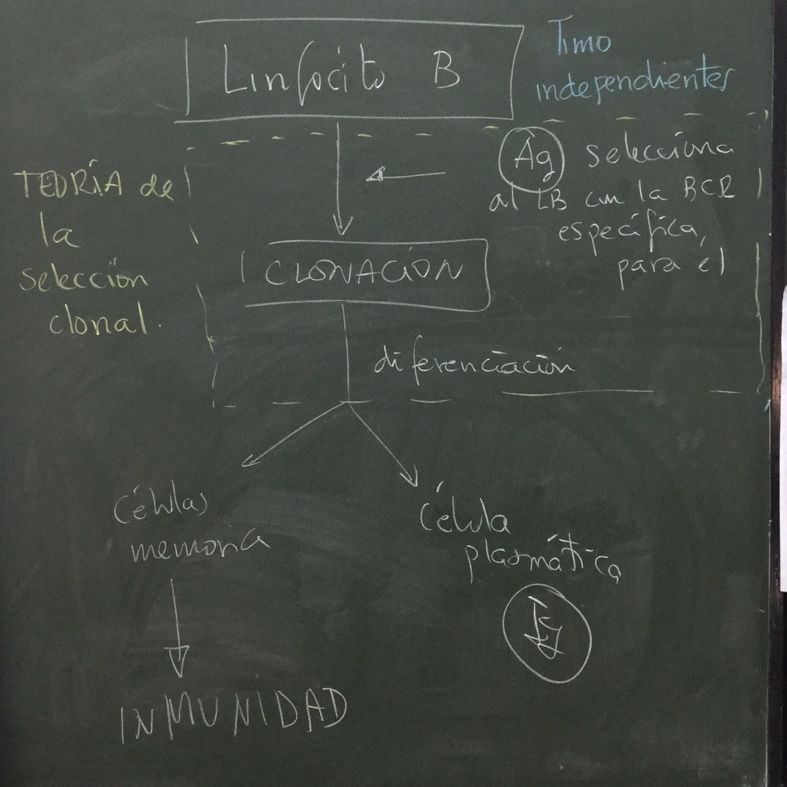 Linfocito B
Timo
independientes
Ag selecciona
al LB con la BCR
específica,
para el
TEORÍA de
la
selección
clonal.
CLONACIÓN
diferenciación
Células
memoria
INMUNIDAD
Célula
plasmática
Ig